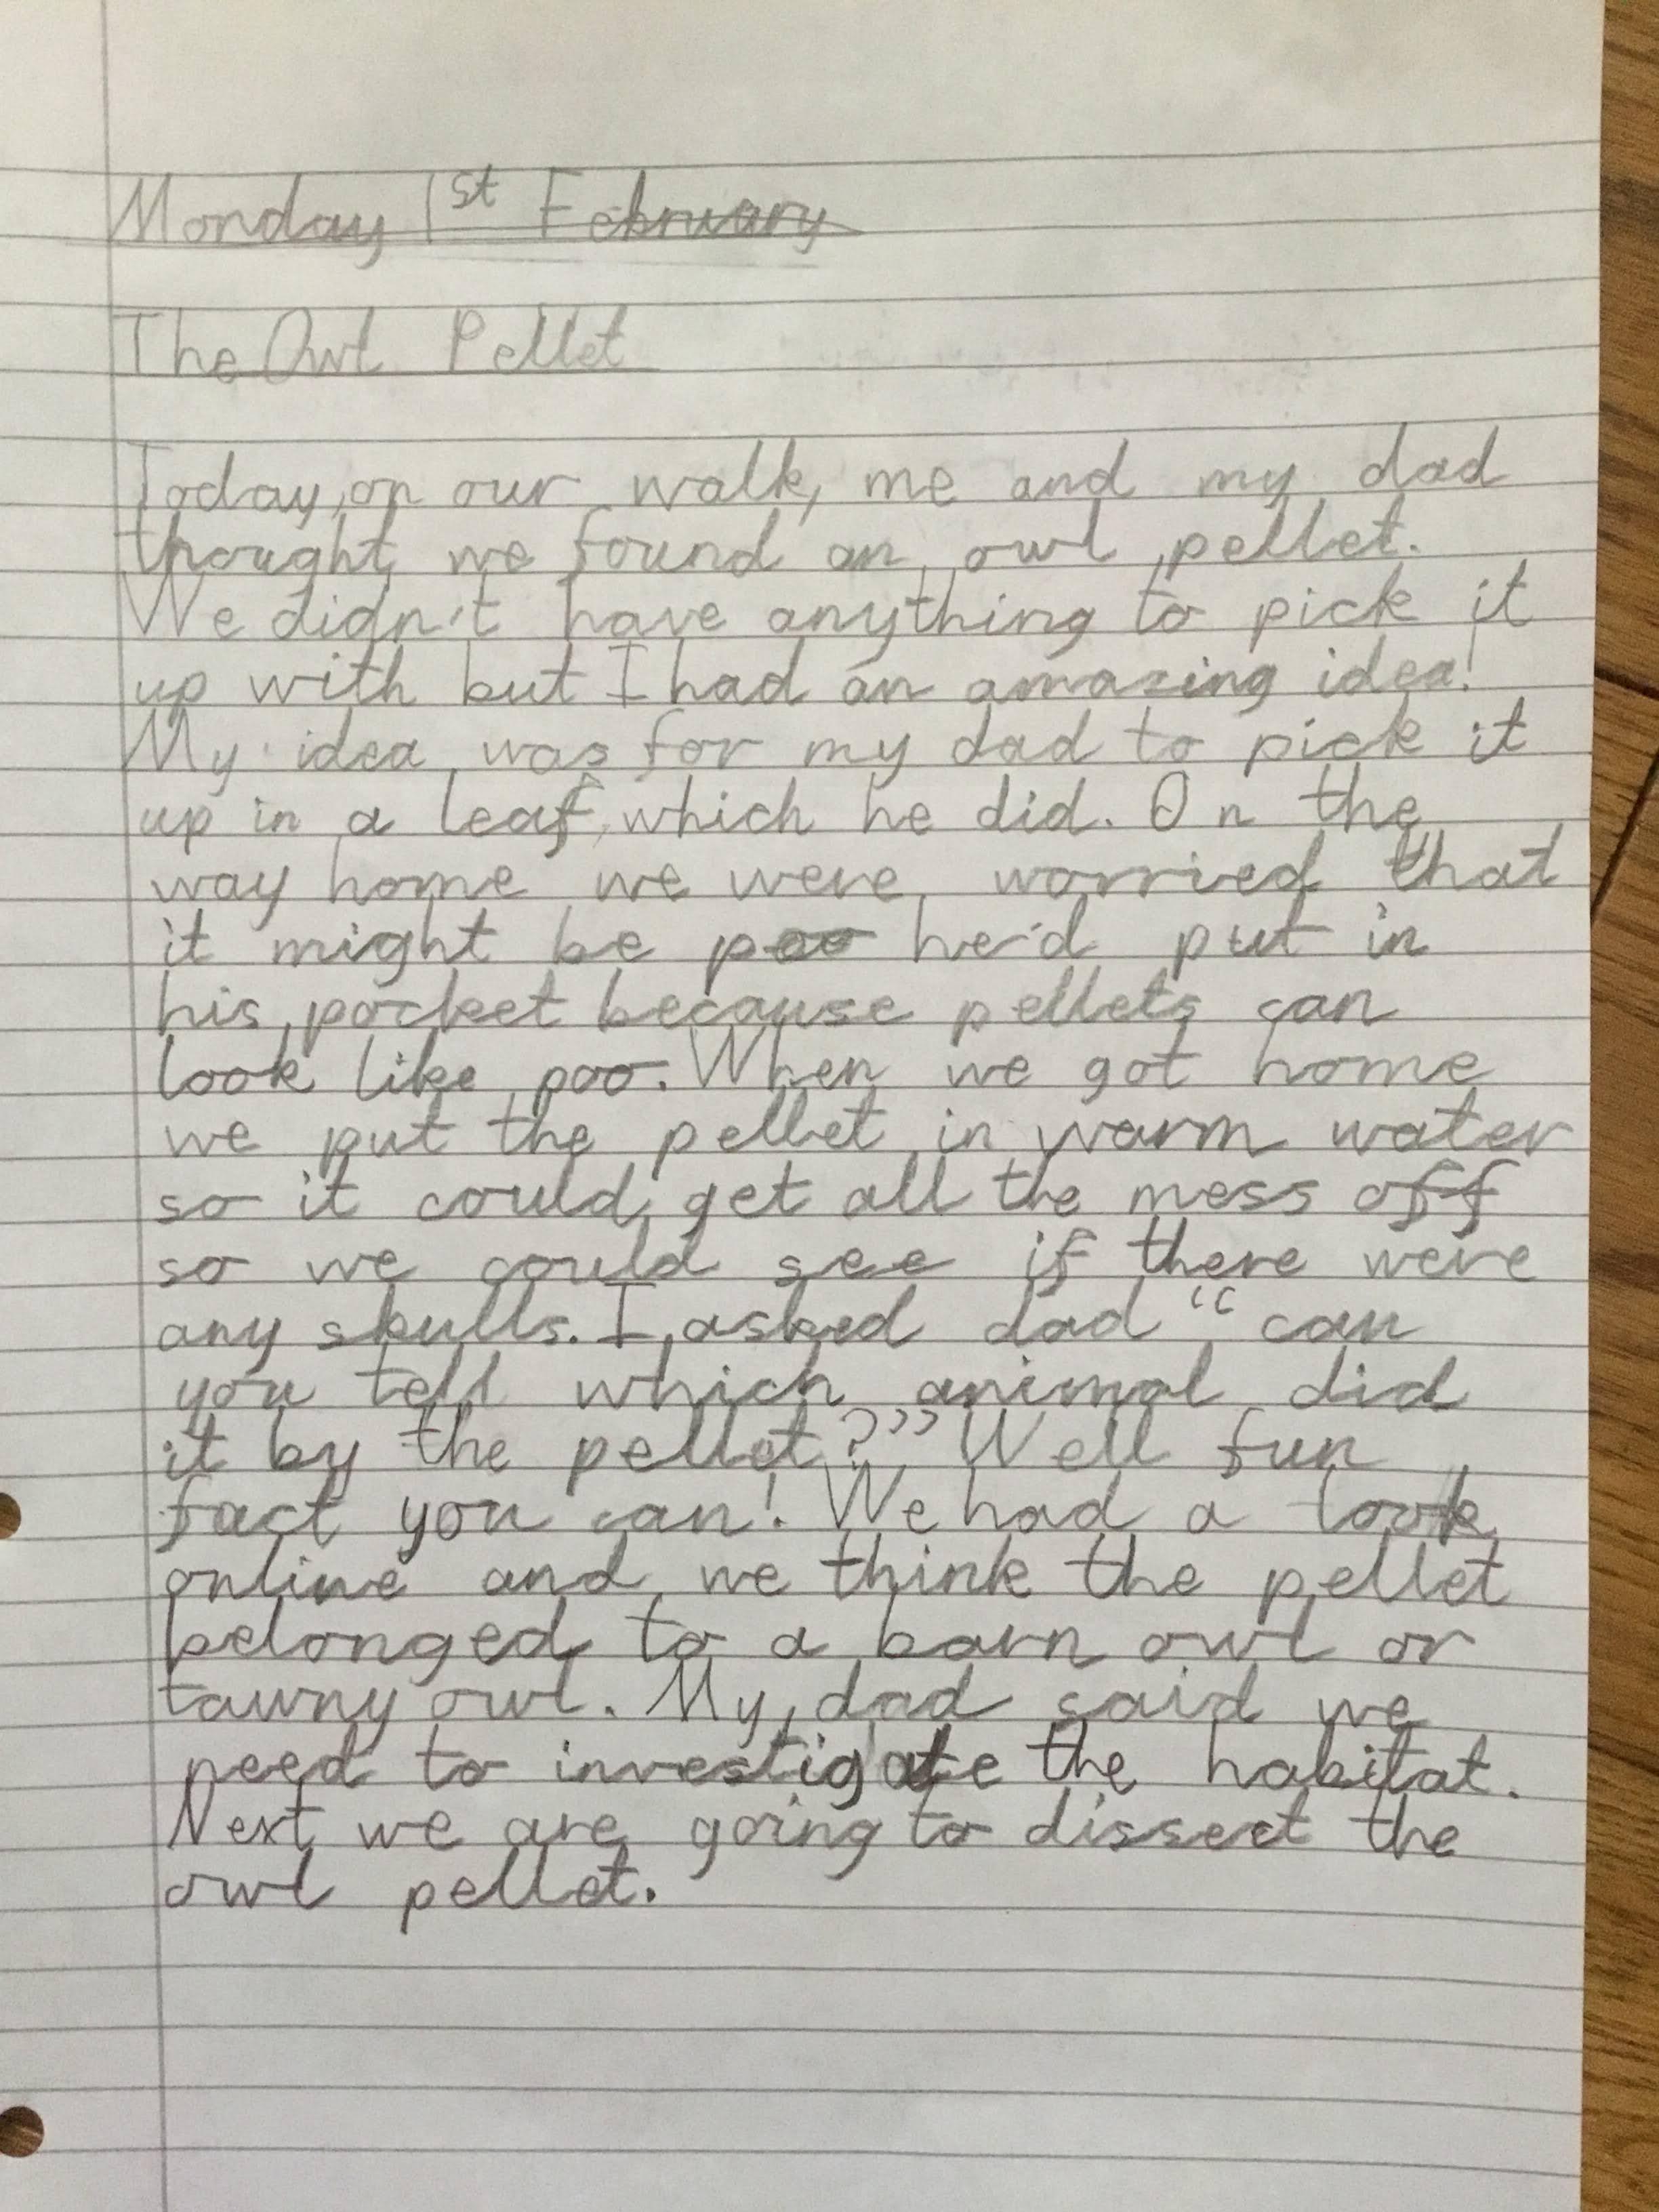 Monday 1st February
The Owl Pellet
Today, on our walk, me and my dad
thought we found an owl pellet.
We didn't have anything to pick it
up with but I had an amazing idea!
My idea was for my dad to pick it
up in a leaf, which he did. On the
way home we were worried that
it might be poo he'd put in
his pocket because pellets can
look like poo. When we got home
we put the pellet in warm water
so it could get all the mess off
so we could see if there were
any skulls. I asked dad "can
you tell which animal did
it by the pellet?" Well fun
fact you can! We had a look
online and we think the pellet
belonged to a barn owl or
tawny owl. My dad said we
need to investigate the habitat.
Next we are going to dissect the
owl pellet.